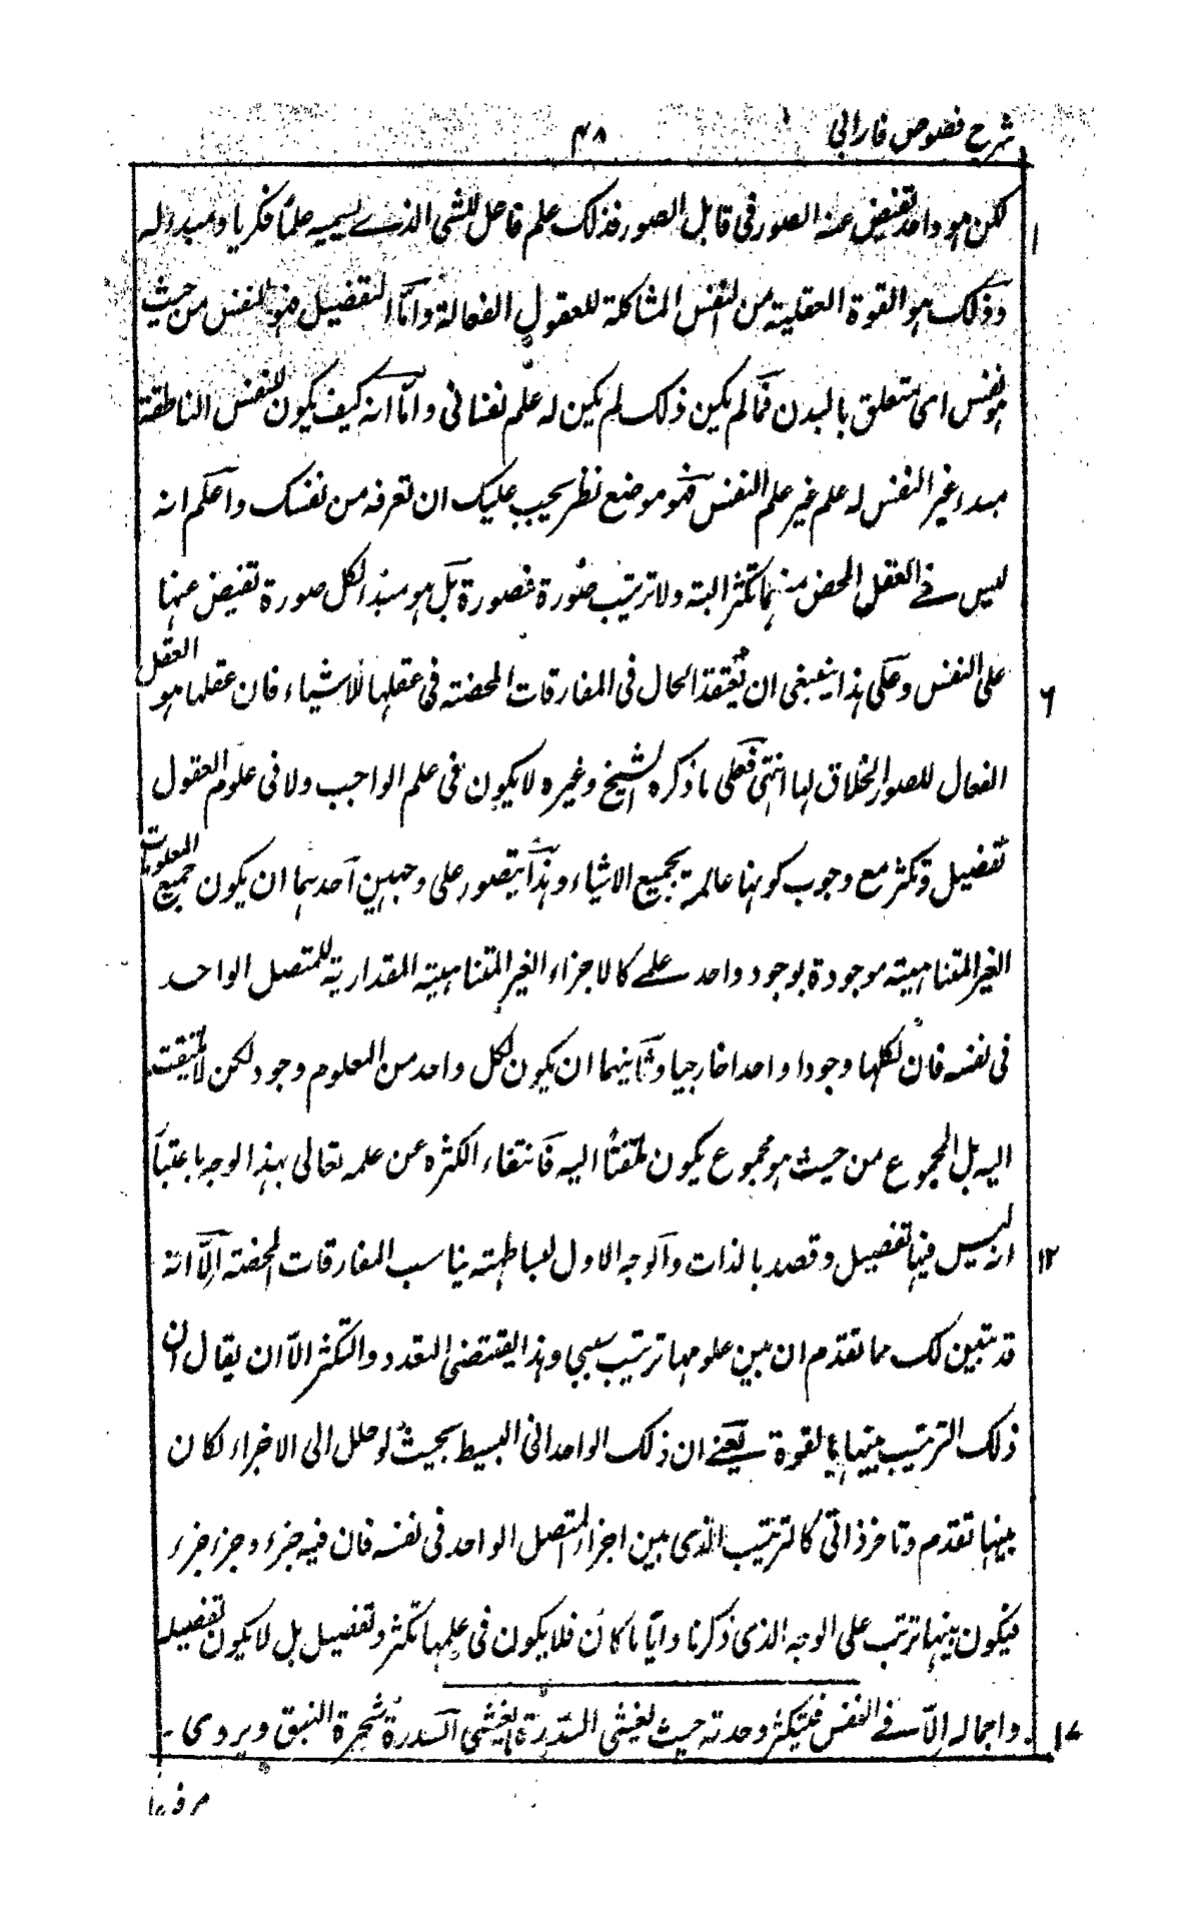 شرح فصوص فارابی
۴۸
لكن هو واحد تفيض عنه الصور فى قابل الصور فذلك علم فاعل للشئ الذے نسميه علمًا فكريا ومبدءله
۱
وذلك هو القوة العقلية من النفس المشاكلة للعقول الفعالة وامّا التفصيل فهو للنفس من حيث
هو نفس اى متعلق بالبدن فما لم يكن ذلك لم يكن له علم نفسانى وامّا انه كيف يكون للنفس الناطقة
مبدء غير النفس له علم غير علم النفس فهو موضع نظر يجب عليك ان تعرفه من نفسك واعلم انه
ليس فے العقل المحض منهما تكثر البتة ولا ترتيب صورة فصورة بل هو مبدأ لكل صورة تفيض عنها
على النفس وعلى هذا ينبغى ان تعتقد الحال فى المفارقات المحضة فى عقلها للاشياء فان عقلها هو العقل
۶
الفعال للصور الخلاق لها انتهى فعلى ما ذكره الشيخ وغيره لا يكون فى علم الواجب ولا فى علوم العقول
تفصيل وتكثر مع وجوب كونها عالمة بجميع الاشياء وهذا يتصور على وجهين احدهما ان يكون جميع المعلومات
الغير المتناهية موجودة بوجود واحد علے كالاجزاء الغير المتناهية المقدارية للمتصل الواحد
فى نفسه فان لكلها وجودا واحدا خارجيا وثانيهما ان يكون لكل واحد من المعلوم وجود لكن لا يلتفت
اليه بل المجموع من حيث هو مجموع يكون ملتفتًا اليه فانتفاء الكثرة عن علمه تعالى بهذا الوجه باعتبار
انه ليس فيها تفصيل وقصد بالذات والوجه الاول لبساطته يناسب المفارقات المحضة الّا انه
۱۲
قد تبين لك مما تقدم ان بين علومها ترتيب سببى وهذا يقتضى التعدد والتكثر الّا ان يقال ان
ذلك الترتيب بينها بالقوة يعنے ان ذلك الواحدانى البسيط بحيث لو حلل الى الاجزاء لكان
بينها تقدم وتاخر ذاتى كالترتيب الذى بين اجزاء المتصل الواحد فى نفسه فان فيه جزء وجزء جزء
فيكون بينها ترتب على الوجه الذى ذكرنا وايًّا ما كان فلا يكون فى علمها تكثر وتفصيل بل لا يكون تفصيله
واجماله الّا فے النفس فيتكثر وحدته حيث يغشى السدرة ما يغشى السدرة شجرة النبق ويروى
۱۷